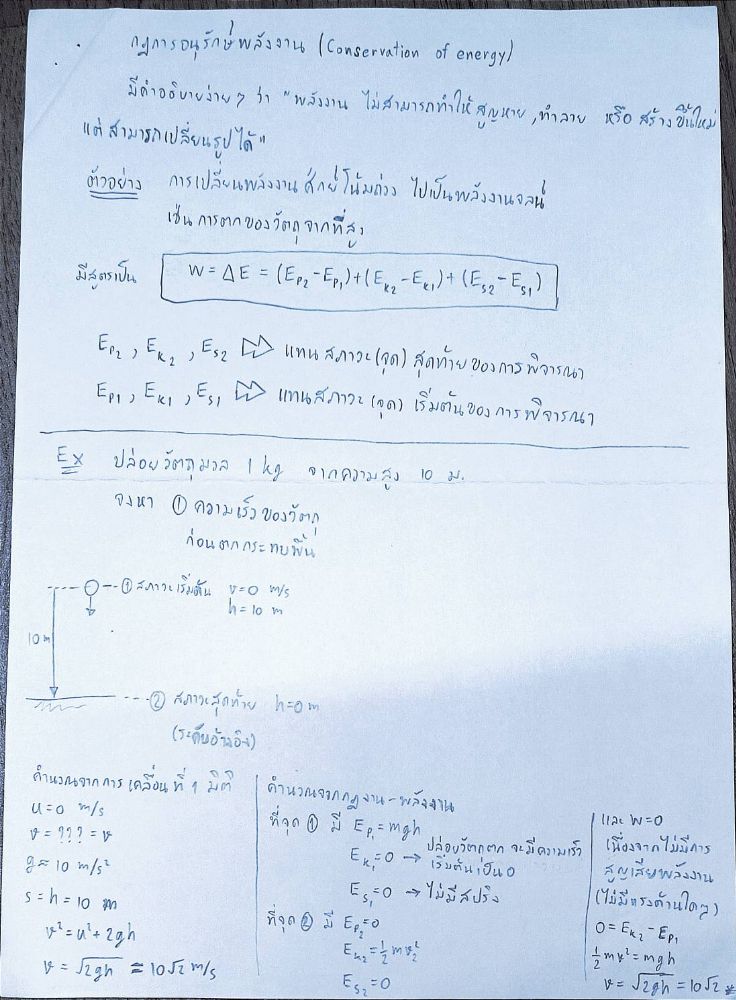 กฎการอนุรักษ์พลังงาน (Conservation of energy)
มีคำอธิบายง่ายๆ ว่า "พลังงาน ไม่สามารถทำให้สูญหาย, ทำลาย หรือ สร้างขึ้นใหม่
แต่สามารถเปลี่ยนรูปได้"
ตัวอย่าง การเปลี่ยนพลังงานศักย์โน้มถ่วง ไปเป็นพลังงานจลน์
เช่น การตกของวัตถุจากที่สูง
มีสูตรเป็น W = ΔE = (Ep₂ - Ep₁) + (Ek₂ - Ek₁) + (Es₂ - Es₁)
Ep₂, Ek₂, Es₂ ⇒ แทนสภาวะ(จุด) สุดท้ายของการพิจารณา
Ep₁, Ek₁, Es₁ ⇒ แทนสภาวะ(จุด) เริ่มต้นของการพิจารณา
Ex ปล่อยวัตถุมวล 1 kg จากความสูง 10 ม.
จงหา ① ความเร็วของวัตถุ
ก่อนตกกระทบพื้น
① สภาวะเริ่มต้น v=0 m/s
h=10 m
10 m
② สภาวะสุดท้าย h=0 m
(ระดับอ้างอิง)
คำนวณจากการเคลื่อนที่ 1 มิติ
u=0 m/s
v=???=v
g=10 m/s²
s=h=10 m
v²=u²+2gh
v=√2gh = 10√2 m/s
คำนวณจากกฎงาน-พลังงาน
ที่จุด ① มี Ep₁=mgh
Ek₁=0 → ปล่อยวัตถุตก จะมีความเร็ว
เริ่มต้นเป็น 0
Es₁=0 → ไม่มีสปริง
ที่จุด ② มี Ep₂=0
Ek₂=½mv₂²
Es₂=0
และ W=0
เนื่องจากไม่มีการ
สูญเสียพลังงาน
(ไม่มีแรงต้านใดๆ)
0=Ek₂-Ep₁
½mv²=mgh
v=√2gh=10√2 *